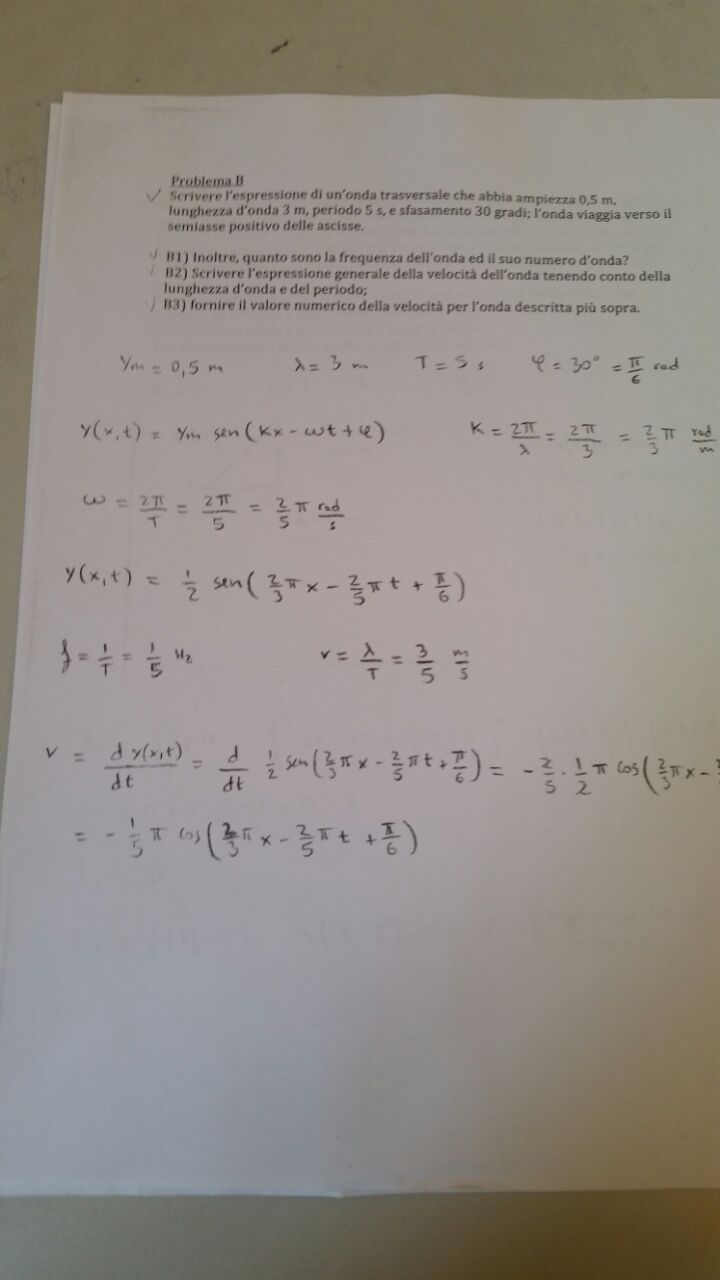 Problema B
Scrivere l'espressione di un'onda trasversale che abbia ampiezza 0,5 m,
lunghezza d'onda 3 m, periodo 5 s, e sfasamento 30 gradi; l'onda viaggia verso il
semiasse positivo delle ascisse.
B1) Inoltre, quanto sono la frequenza dell'onda ed il suo numero d'onda?
B2) Scrivere l'espressione generale della velocità dell'onda tenendo conto della
lunghezza d'onda e del periodo;
B3) fornire il valore numerico della velocità per l'onda descritta più sopra.
ym = 0,5 m λ = 3 m T = 5 s φ = 30° = π/6 rad
y(x,t) = ym sen(kx - ωt + φ) K = 2π/λ = 2π/3 = 2/3 π rad/m
ω = 2π/T = 2π/5 = 2/5 π rad/s
y(x,t) = 1/2 sen(2/3 πx - 2/5 πt + π/6)
f = 1/T = 1/5 Hz v = λ/T = 3/5 m/s
v = d y(x,t)/dt = d/dt 1/2 sen(2/3 πx - 2/5 πt + π/6) = - 2/5 · 1/2 π cos(2/3 πx -
= - 1/5 π cos(2/3 πx - 2/5 πt + π/6)